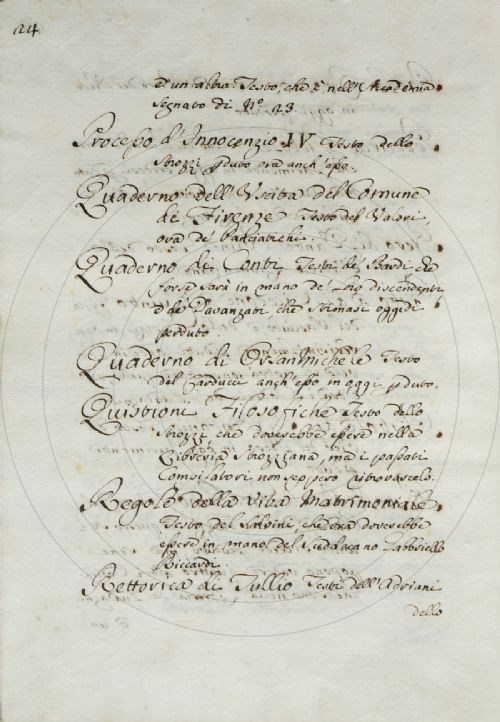 24
d'un altro Testo, che è nell'Accademia
segnato di N.º 23.
Processo d'Innocenzio IV Testo dello
Strozzi pduto ora anch'esso.
Quaderno dell'Uscita del Comune
di Firenze Testo del Valori,
ora de' Panciatichi.
Quaderno di Conti Testi de' Bardi che
forse sarà in mano de' discendenti
d'de Davanzati che stimasi oggidì
perduto
Quaderno di Orsanmichele Testo
del Carducci anch'esso in oggi pduto.
Quistioni Filosofiche Testo dello
Strozzi, che doverebbe essere nella
Libreria Strozziana, ma i passati
Compilatori non seppero ritrovarcelo.
Regole della Vita Matrimoniale
Testo del Salvini, che ora doverebbe
essere in mano del Suddecano Gabbriello
Riccardi.
Rettorica di Tullio Testi dell'Adriani
dello